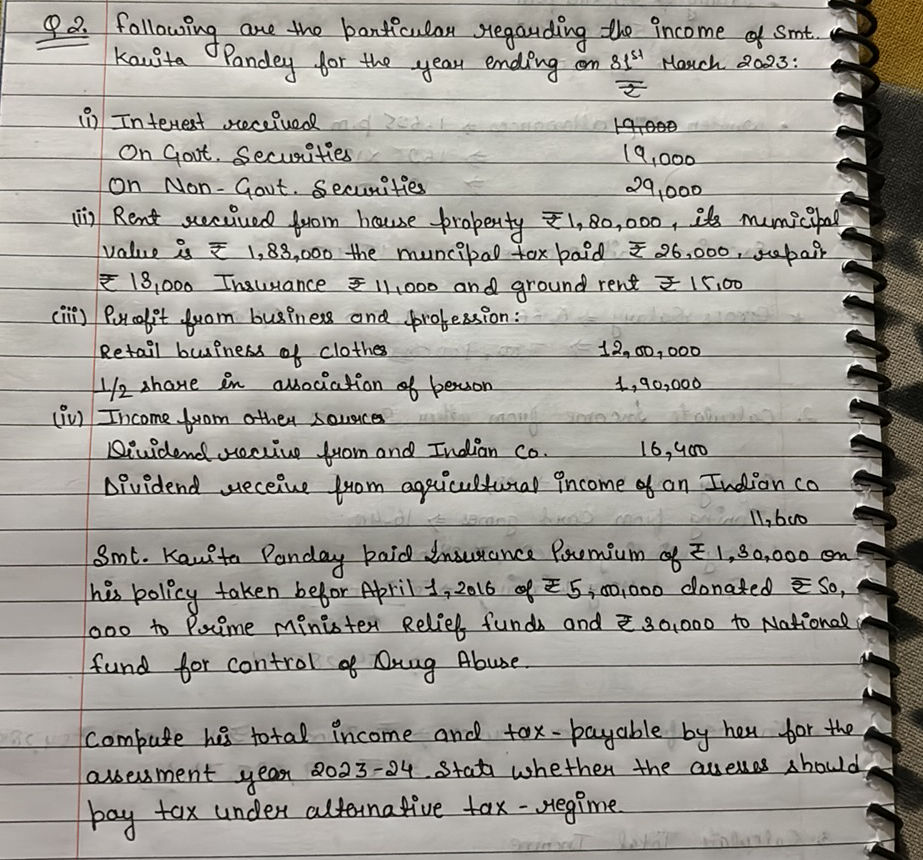 Q2. Following are the particular regarding the income of Smt.
Kavita Pandey for the year ending on 31st March 2023:
₹
(i) Interest received 19,000
On Govt. Securities 19,000
On Non-Govt. Securities 29,000
(ii) Rent received from house property ₹1,80,000, its municipal
value is ₹ 1,83,000 the muncipal tax paid ₹ 26,000, repair
₹ 13,000 Insurance ₹ 11,000 and ground rent ₹ 15,00
(iii) Profit from business and profession:
Retail business of clothes 12,00,000
1/2 share in association of person 1,90,000
(iv) Income from other sources
Dividend receive from and Indian Co. 16,400
Dividend receive from agricultural income of an Indian co
11,600
Smt. Kavita Panday paid Insurance Premium of ₹ 1,30,000 on
his policy taken befor April 1, 2016 of ₹ 5,00,000 donated ₹ 50,
000 to Prime Minister Relief funds and ₹ 30,000 to National
fund for control of Drug Abuse.
Compute his total income and tax-payable by her for the
assessment year 2023-24. State whether the assesses should
pay tax under alternative tax-regime.